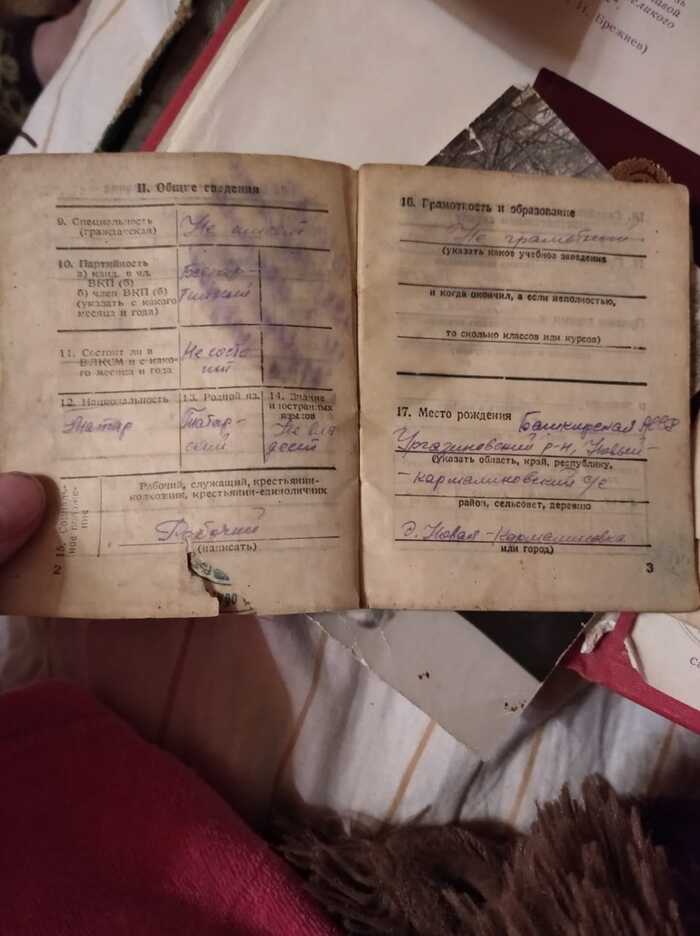 авой
еликого
И. Брежнев)
II. Общие сведения
9. Специальность
(гражданская)
Не имеет
10. Партийность
а) канд. в чл.
ВКП (б)
б) член ВКП (б)
(указать с какого
месяца и года)
Беспар-
тийный
11. Состоит ли в
ВЛКСМ и с како-
го месяца и года
Не состо
ит
12. Национальность
Татар
13. Родной яз.
Татар-
ский
14. Знание
иностранных
языков
Не вла
деет
15. Социаль-
ное положе-
ние
Рабочий, служащий, крестьянин-
колхозник, крестьянин-единоличник
Рабочий
(написать)
2
16. Грамотность и образование
Не грамотный
(указать какое учебное заведение
и когда окончил, а если неполностью,
то сколько классов или курсов)
17. Место рождения Башкирская АССР
Ургазиновский р-н, Новый-
(указать область, край, республику,
-кармалиновский с/с
район, сельсовет, деревню
д. Новая-Кармалиновка
или город)
3